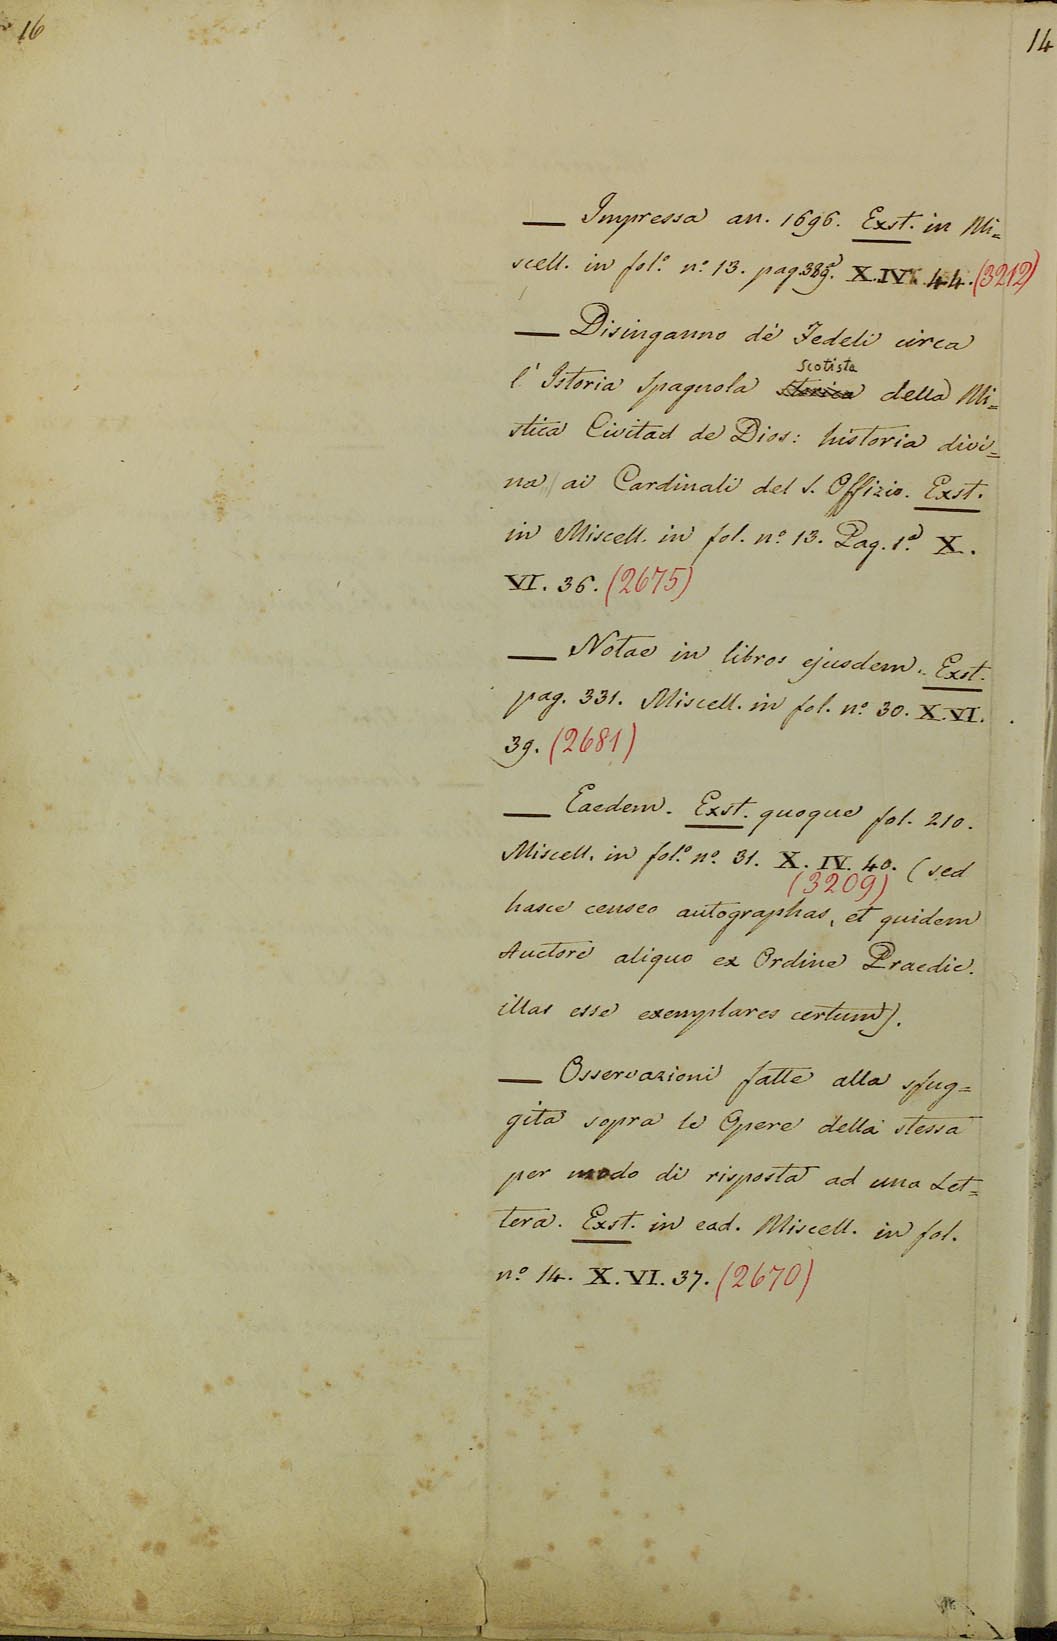 16
14
— Impressa an. 1696. Exst. in Mi=
scell. in fol.º nº 13. pag. 389. X.IV. 44. (3212)
— Disinganno dè Fedeli circa
l' Istoria Spagnola Scotista della Mi=
stica Civitad de Dios: historia divi=
na ai Cardinali del S. Offizio. Exst.
in Miscell. in fol. nº 13. Pag. 1.ª X.
VI. 36. (2675)
— Notae in libros ejusdem. Exst.
pag. 331. Miscell. in fol. nº 30. X.VI.
39. (2681)
— Eaedem. Exst. quoque fol. 210.
Miscell. in fol.º nº 31. X. IV. 40. (sed
(3209)
hasce censeo autographas, et quidem
Auctore aliquo ex Ordine Praedic.
illas esse exemplares certum).
— Osservazioni fatte alla sfug=
gita sopra le Opere della stessa
per modo di risposta ad una Let=
tera. Exst. in ead. Miscell. in fol.
nº 14. X. VI. 37. (2670)